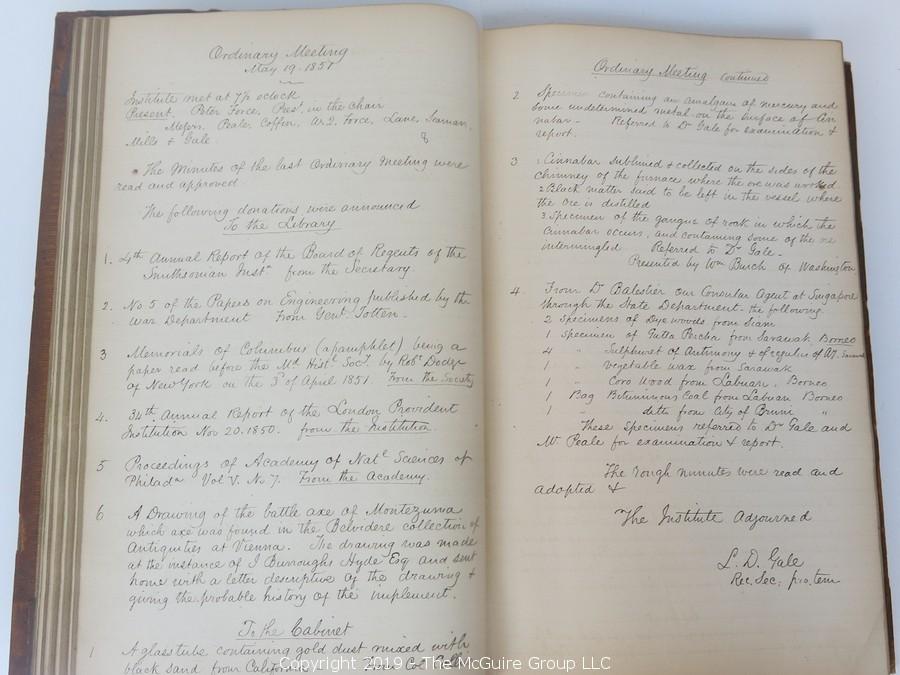 Ordinary Meeting
May 19. 1851
Institute met at 7½ oclock
Present, Peter Force, Prest. in the chair
Messrs. Peale, Coffin, W. Q. Force, Lane, Seaman,
Mills & Gale. 8
The Minutes of the last Ordinary Meeting were
read and approved
The following donations were announced
To the Library
1. 4th Annual Report of the Board of Regents of the
Smithsonian Instn from the Secretary.
2. No 5 of the Papers on Engineering published by the
War Department From Genl. Totten.
3 Memorials of Columbus (a pamphlet) being a
paper read before the Md Histl Socy. by Robt Dodge
of New York on the 3d of April 1851. From the Society
4. 34th Annual Report of the London Provident
Institution Nov 20. 1850. from the Institution.
5 Proceedings of Academy of Natl Sciences of
Philada Vol V. No 7. From the Academy.
6 A Drawing of the battle axe of Montezuma
which axe was found in the Belvidere collection of
Antiquities at Vienna. The drawing was made
at the instance of I Burroughs Hyde Esq and sent
home with a letter descriptive of the drawing &
giving the probable history of the implement.
To the Cabinet
1 A glass tube containing gold dust mixed with
black sand from California
Ordinary Meeting continued
2 Specimen containing an amalgam of mercury and
some undetermined metal on the surface of Cin
nabar - Referred to Dr Gale for examination &
report.
3 1 Cinnabar sublimed & collected on the sides of the
chimney of the furnace where the ore was worked
2 Black matter said to be left in the vessel where
the ore is distilled
3 Specimen of the gangue of rock in which the
cinnabar occurs, and containing some of the ore
intermingled Referred to Dr Gale.
Presented by Wm Burch of Washington
4. From Dr Balestier our Consular Agent at Singapore
through the State Department the following
2 Specimens of Dye woods from Siam
1 Specimen of Gutta Percha from Sarawak Borneo
4 " Sulphuret of Antimony & of regulus of Ay. Sarawak
1 " vegetable wax from Sarawak
1 " Coro Wood from Labuan, Borneo
1 Bag Bituminous Coal from Labuan Borneo
1 " ditto from City of Bruni "
These Specimens referred to Dr Gale and
Mr Peale for examination & report.
The rough minutes were read and
adopted &
The Institute Adjourned
L. D. Gale
Rec. Sec: pro. tem
Copyright 2019 The McGuire Group LLC